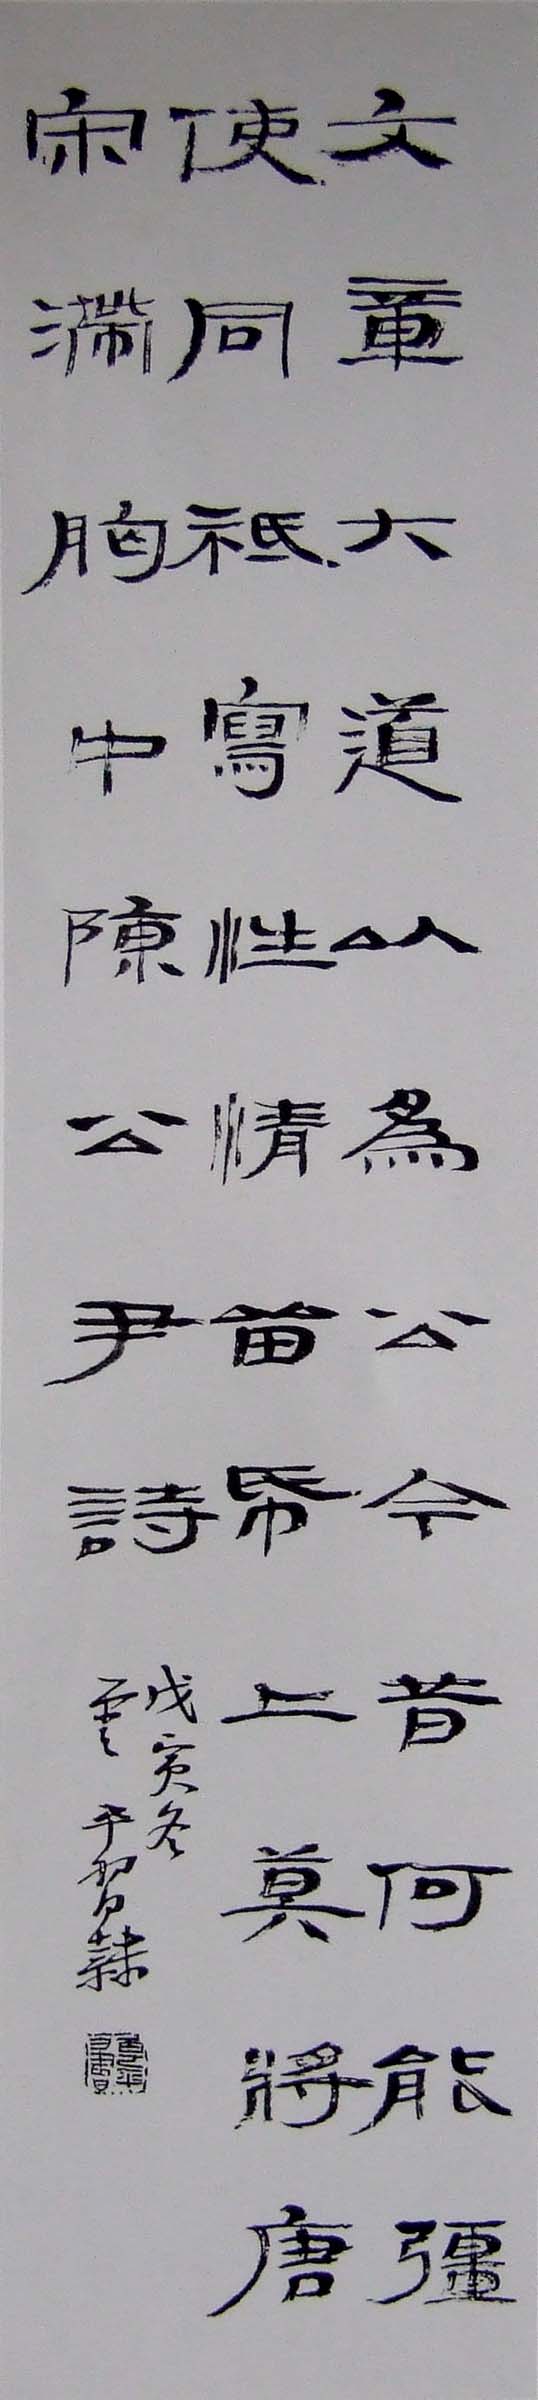 文章大道以為公今昔何能彊
使同祇寫性情留帋上莫將唐
宋滯胸中陳公尹詩
戊寅冬
雲平習隸